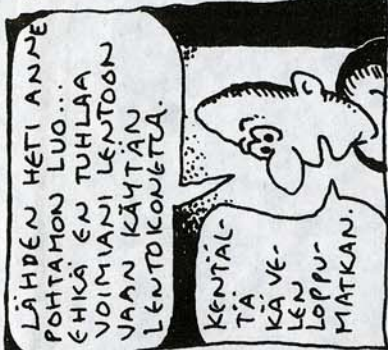 LÄHDEN HETI ANNE
POHTAMON LUO...
EHKÄ EN TUHLAA
VOIMIANI LENTOON
VAAN KÄYTÄN
LENTOKONETTA.
KENTÄL-
TÄ
KÄVE-
LEN
LOPPU-
MATKAN.